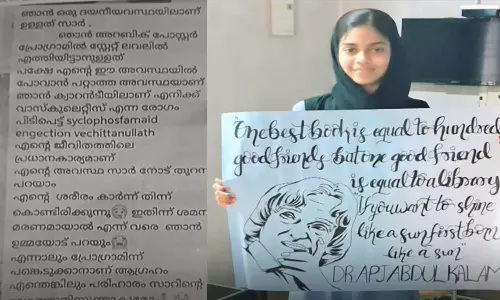 ഞാൻ ഒരു ദയനീയവസ്ഥയിലാണ്
ഉള്ളത് സാർ .
ഞാൻ അറബിക് പോസ്റ്റർ
പ്രോഗ്രാമിൽ സ്റ്റേറ്റ് ലവലിൽ
എത്തിയിട്ടാനുള്ളത്
പക്ഷേ എന്റെ ഈ അവസ്ഥയിൽ
പോവാൻ പറ്റാത്ത അവസ്ഥയാണ്
ഞാൻ ക്യാറൻ്റീയിലാണ് എനിക്ക്
വാസ്കുലെറ്റീസ് എന്ന രോഗം
പിടിപെട്ട് syclophosfamaid
engection vechittanullath
എന്റെ ജീവിതത്തിലെ
പ്രധാനകാര്യമാണ്
എന്റെ അവസ്ഥ സാർ നോട് തുറന്ന
പറയാം
എന്റെ ശരീരം കാർന്ന് തിന്ന്
കൊണ്ടിരിക്കുന്നു😥 ഇതിന്ന് ശമന
മരണമായാൽ എന്ന് വരെ ഞാൻ
ഉമ്മയോട് പറയും😭
എന്നാലും പ്രോഗ്രാമിന്ന്
പങ്കെടുക്കാനാണ് ആഗ്രഹം
എന്തെങ്കിലും പരിഹാരം സാറിന്റെ
"One best book is equal to hundred
good friends but one good friend
is equal to a library
"If you want to shine
like a sun first born
like a sun"
DR APJ ABDUL KALAM